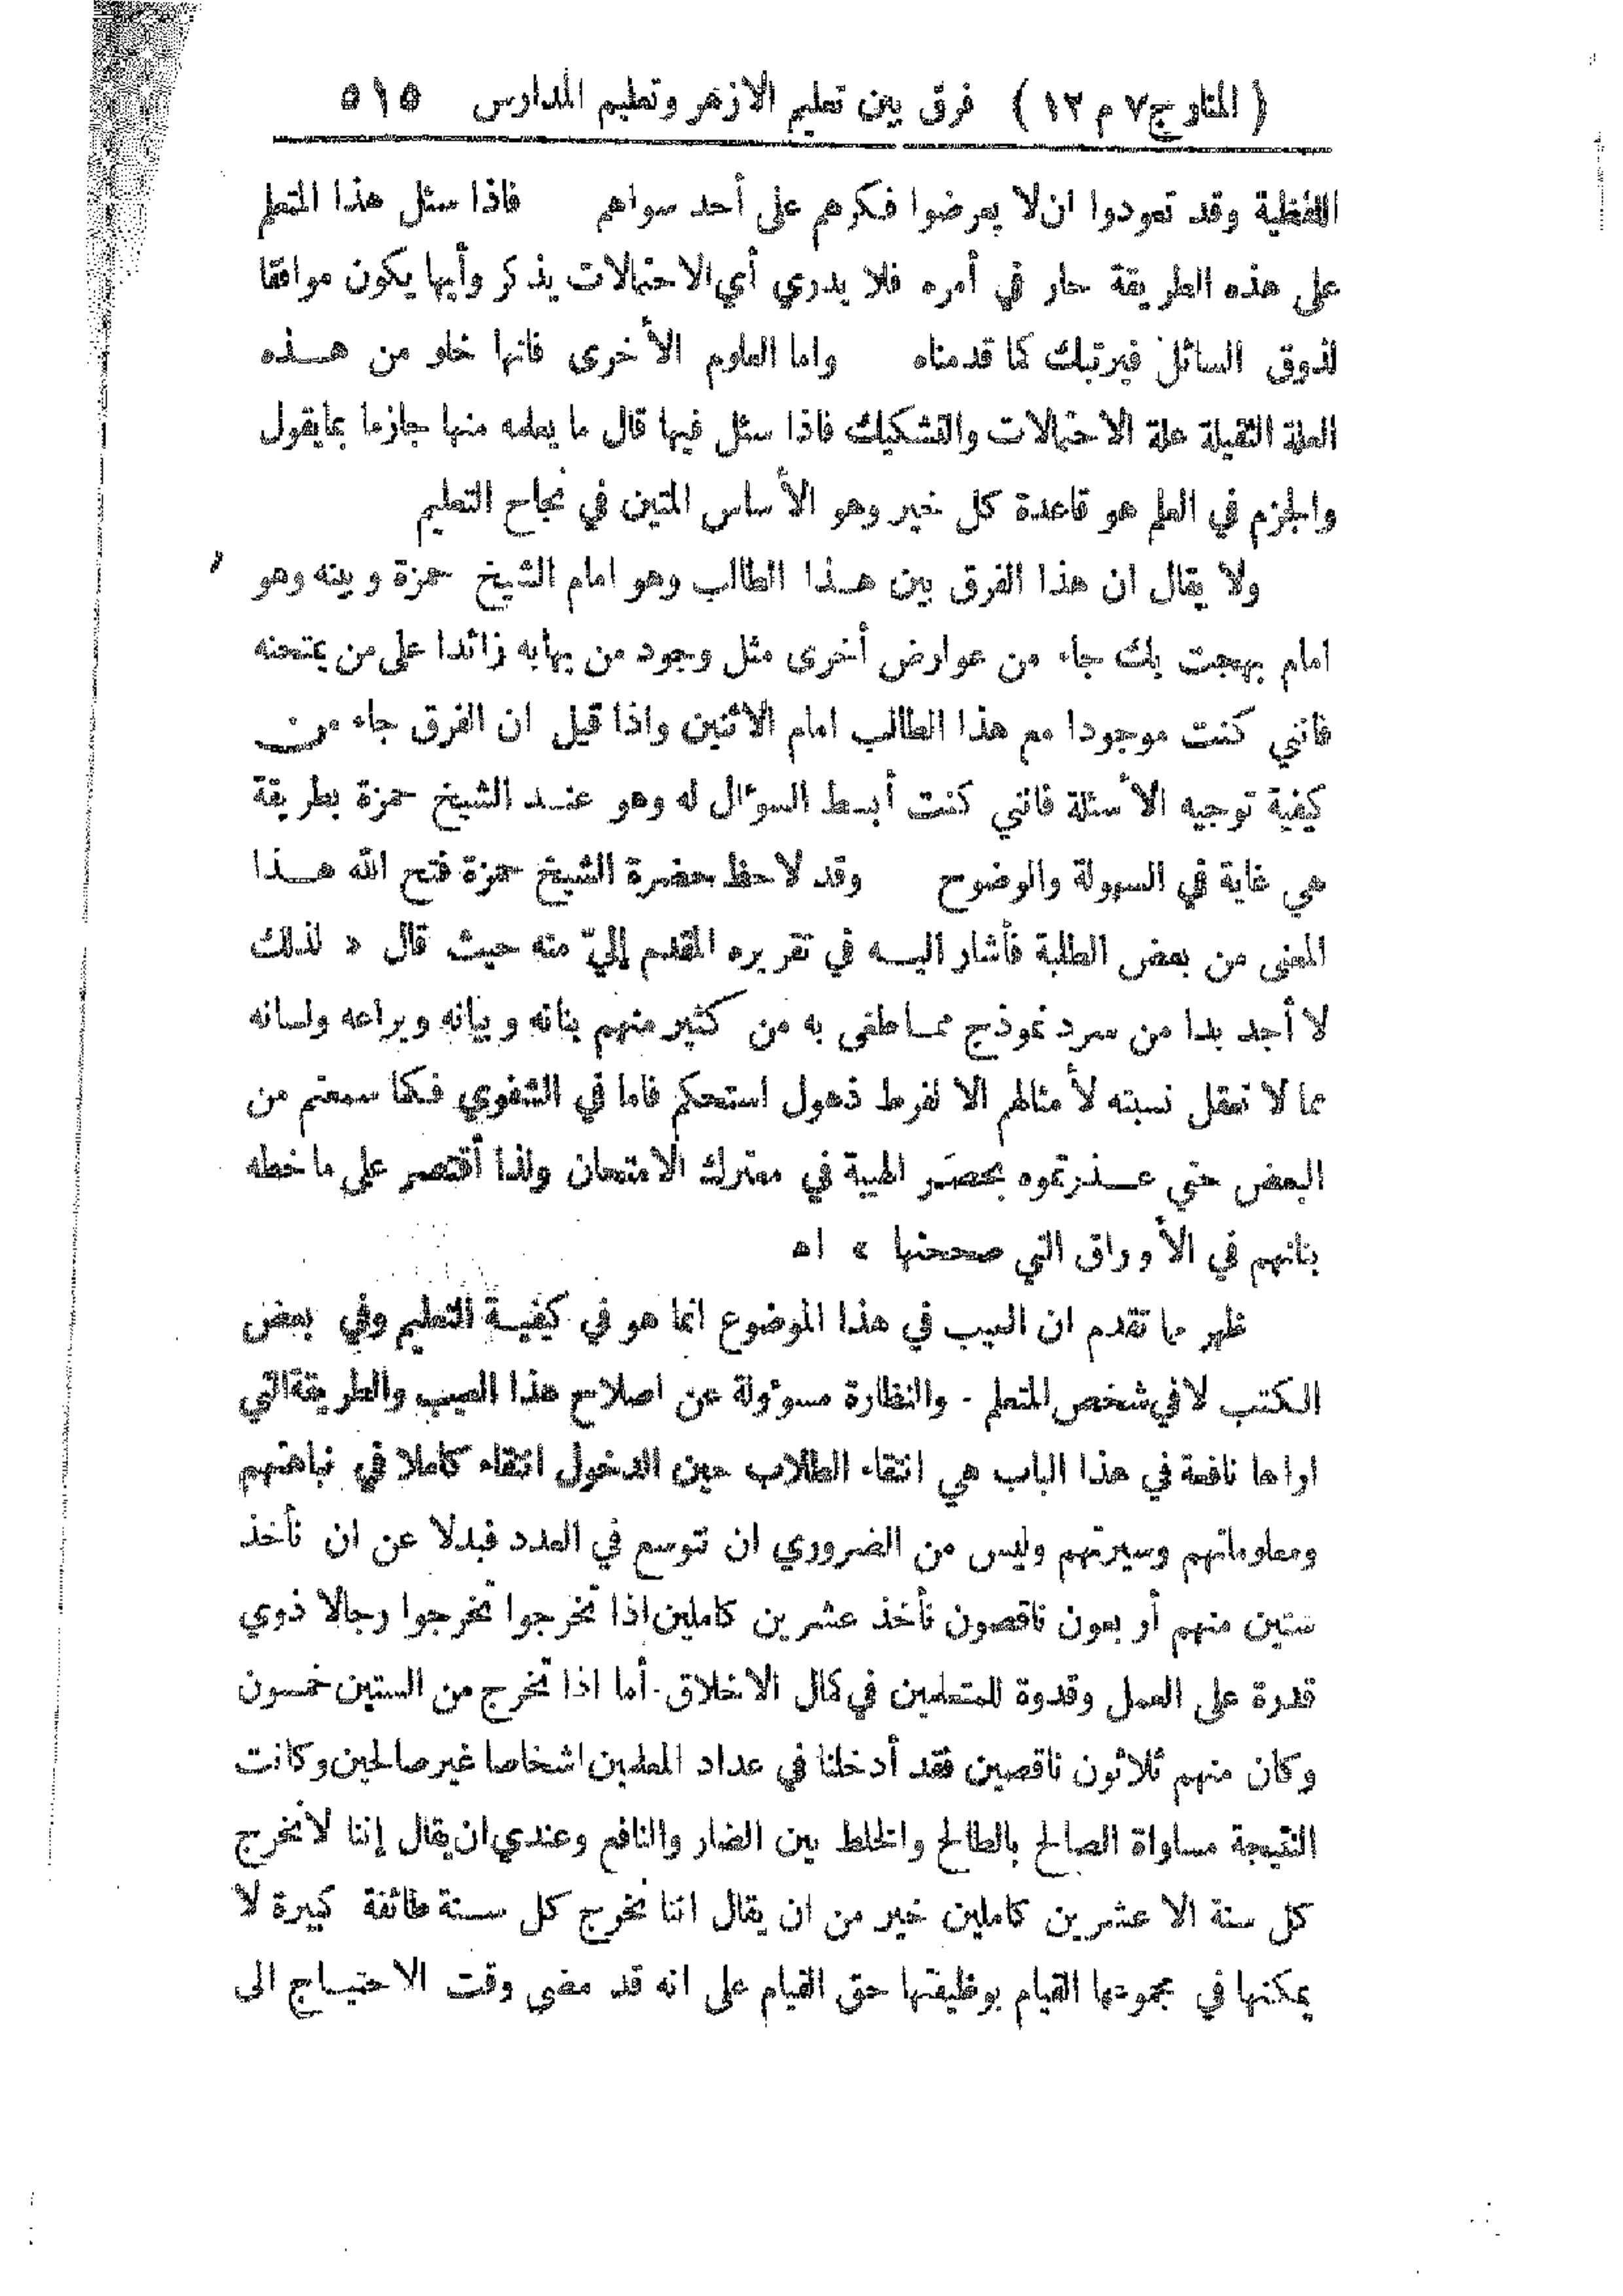 ( المنار ج ٧ م ١٢ ) فرق بين تعليم الازهر وتعليم المدارس ٥١٥
اللفظية وقد تعودوا ان لا يعرضوا فكرهم على أحد سواهم فاذا سئل هذا المتعلم
على هذه الطريقة حار في أمره فلا يدري أي الاحتمالات يذكر وأيها يكون موافقا
لذوق السائل فيرتبك كما قدمناه واما العلوم الأخرى فانها خلو من هــذه
العلة الثقيلة علة الاحتمالات والتشكيك فاذا سئل فيها قال ما يعلمه منها جازما بما يقول
والجزم في العلم هو قاعدة كل خير وهو الأساس المتين في نجاح التعليم
ولا يقال ان هذا الفرق بين هــذا الطالب وهو امام الشيخ حمزة وبينه وهو
امام بهجت بك جاء من عوارض أخرى مثل وجود من يهابه زائدا على من يمتحنه
فانني كنت موجودا مع هذا الطالب امام الاثنين واذا قيل ان الفرق جاء من
كيفية توجيه الأسئلة فانني كنت أبسط السؤال له وهو عنــد الشيخ حمزة بطريقة
هي غاية في السهولة والوضوح وقد لاحظ حضرة الشيخ حمزة فتح الله هــذا
المعنى من بعض الطلبة فأشار اليــه في تقريره المقدم إليّ منه حيث قال « لذلك
لا أجد بدا من سرد نموذج ممــا طغى به من كثير منهم بنانه وبيانه ويراعه ولسانه
مما لا تعقل نسبته لأمثالهم الا لفرط ذهول استحكم فاما في الشفوي فكما سمعتم من
البعض حتى عــذرتموه بحصَر الهيبة في معترك الامتحان ولذا أقتصر على ما خطه
بنانهم في الأوراق التي صححتها » اه
ظهر مما تقدم ان العيب في هذا الموضوع انما هو في كيفيــة التعليم وفي بعض
الكتب لا في شخص المتعلم . والنظارة مسؤولة عن اصلاح هذا العيب والطريقة التي
اراها نافعة في هذا الباب هي انتقاء الطلاب حين الدخول انتقاء كاملا في نباهتهم
ومعلوماتهم وسيرتهم وليس من الضروري ان نتوسع في العدد فبدلا عن ان نأخذ
ستين منهم أربعون ناقصون نأخذ عشرين كاملين اذا تخرجوا تخرجوا رجالا ذوي
قدرة على العمل وقدوة للمتعلمين في كمال الاخلاق . أما اذا تخرج من الستين خمسون
وكان منهم ثلاثون ناقصين فقد أدخلنا في عداد المعلمين اشخاصا غير صالحين وكانت
النتيجة مساواة الصالح بالطالح والخلط بين الضار والنافع وعندي ان يقال إننا لا نخرج
كل سنة الا عشرين كاملين خير من ان يقال اننا نخرج كل ســنة طائفة كبيرة لا
يمكنها في مجموعها القيام بوظيفتها حق القيام على انه قد مضى وقت الاحتيــاج الى